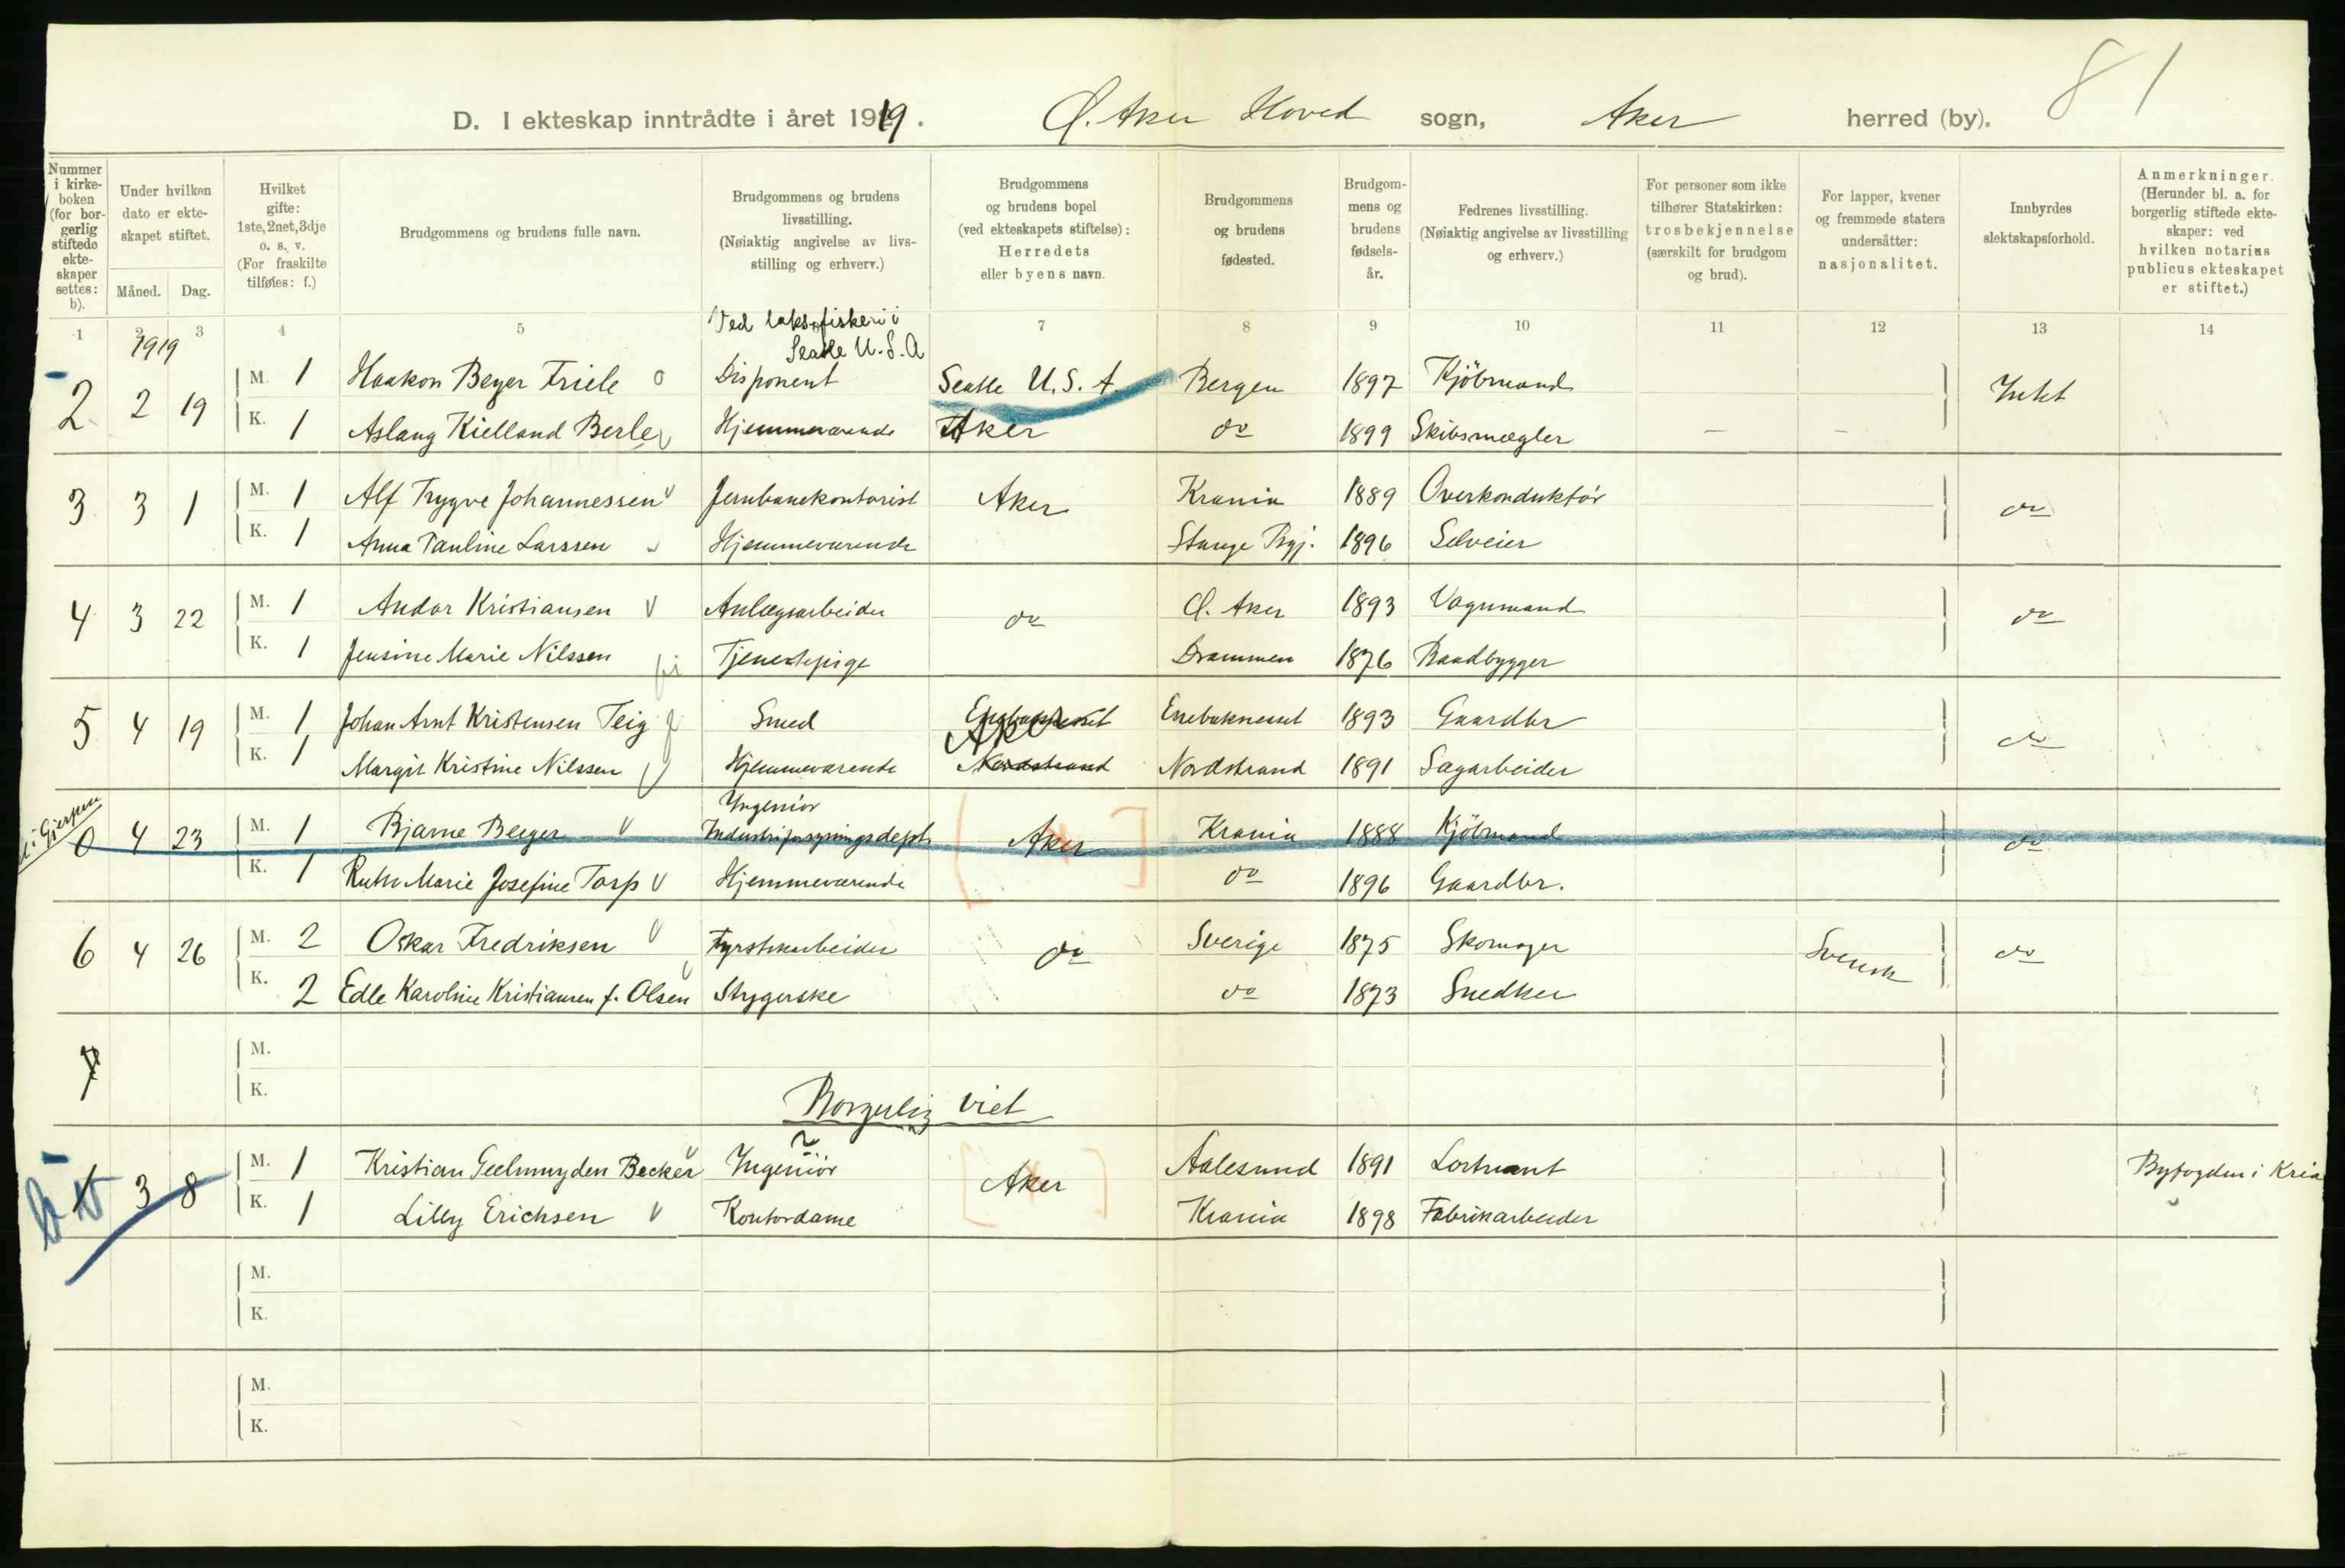 81
D. I ekteskap inntrådte i året 1919. Ø. Aker Hoved sogn, Aker herred (by).
Nummer i kirke-boken (for bor-gerlig stiftede ekte-skaper settes: b).
Under hvilken dato er ekte-skapet stiftet.
Måned. Dag.
Hvilket gifte: 1ste, 2net, 3dje o. s. v. (For fraskilte tilføies: f.)
Brudgommens og brudens fulle navn.
Brudgommens og brudens livsstilling. (Nøiaktig angivelse av livs-stilling og erhverv.)
Brudgommens og brudens bopel (ved ekteskapets stiftelse): Herredets eller byens navn.
Brudgommens og brudens fødested.
Brudgom-mens og brudens fødsels-år.
Fedrenes livsstilling. (Nøiaktig angivelse av livsstilling og erhverv.)
For personer som ikke tilhører Statskirken: trosbekjennelse (særskilt for brudgom og brud).
For lapper, kvener og fremmede staters undersåtter: nasjonalitet.
Innbyrdes slektskapsforhold.
Anmerkninger. (Herunder bl. a. for borgerlig stiftede ekte-skaper: ved hvilken notarius publicus ekteskapet er stiftet.)
1 2 3 4 5 7 8 9 10 11 12 13 14
1919
Ved laksefiskeri i
Seatle U.S.A
2 2 19 M. 1 Haakon Beyer Friele Disponent Seatle U.S.A. Bergen 1897 Kjöbmand Intet
K. 1 Aslaug Kielland Berle Hjemmeværende Aker do 1899 Skibsmægler — —
3 3 1 M. 1 Alf Trygve Johannessen Jernbanekontorist Aker Krania 1889 Overkonduktör do
K. 1 Anna Pauline Larssen Hjemmeværende Stange Pgj. 1896 Selveier
4 3 22 M. 1 Andor Kristiansen Anlægsarbeider do Ø. Aker 1893 Vognmand do
K. 1 Jensine Marie Nilssen Tjenestepige Drammen 1876 Baadbygger
5 4 19 M. 1 Johan Arnt Kristensen Teig Smed Enebaknesset Enebaknesset 1893 Gaardbr do
Aker
K. 1 Margit Kristine Nilssen Hjemmeværende Nordstrand Nordstrand 1891 Sagarbeider
i Gjerpen
Ingeniør
0 4 23 M. 1 Bjarne Berger Industriforsyningsdept. Aker Krania 1888 Kjöbmand do
K. 1 Ruth Marie Josefine Torp Hjemmeværende do 1896 Gaardbr.
6 4 26 M. 2 Oskar Fredriksen Fyrstikarbeider do Sverige 1875 Skomager Svensk do
K. 2 Edle Karoline Kristiansen f. Olsen Strygerske do 1873 Snedker
7 M.
K.
Borgerlig viet
1 3 8 M. 1 Kristian Geelmuyden Becker Ingeniör Aker Aalesund 1891 Løitnant Byfogden i Kria
K. 1 Lilly Erichsen Kontordame Krania 1898 Fabrikarbeider
M.
K.
M.
K.